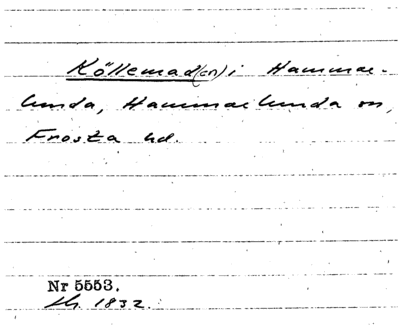 Köllemad(en) i Hammar-
lunda, Hammarlunda sn,
Frosta hd.
Nr 5553.
1832.